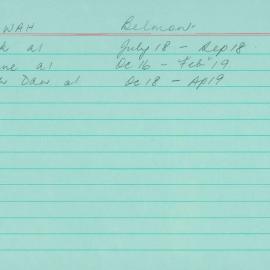 WAH Belmont
k at July 18 - Sep 18
ne at Dec 16 - Feb 19
w Daw at Dec 18 - Ap 19